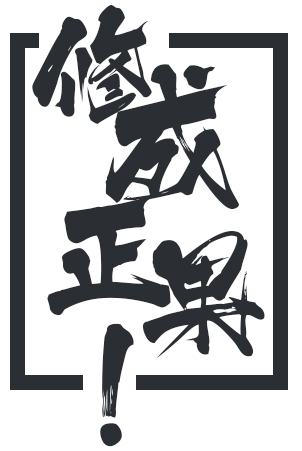 修成正果！